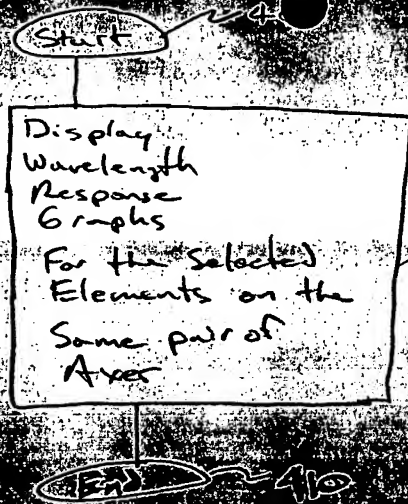 Start
4
Display
Wavelength
Response
Graphs
For the Selected
Elements on the
Same pair of
Axes
End 410